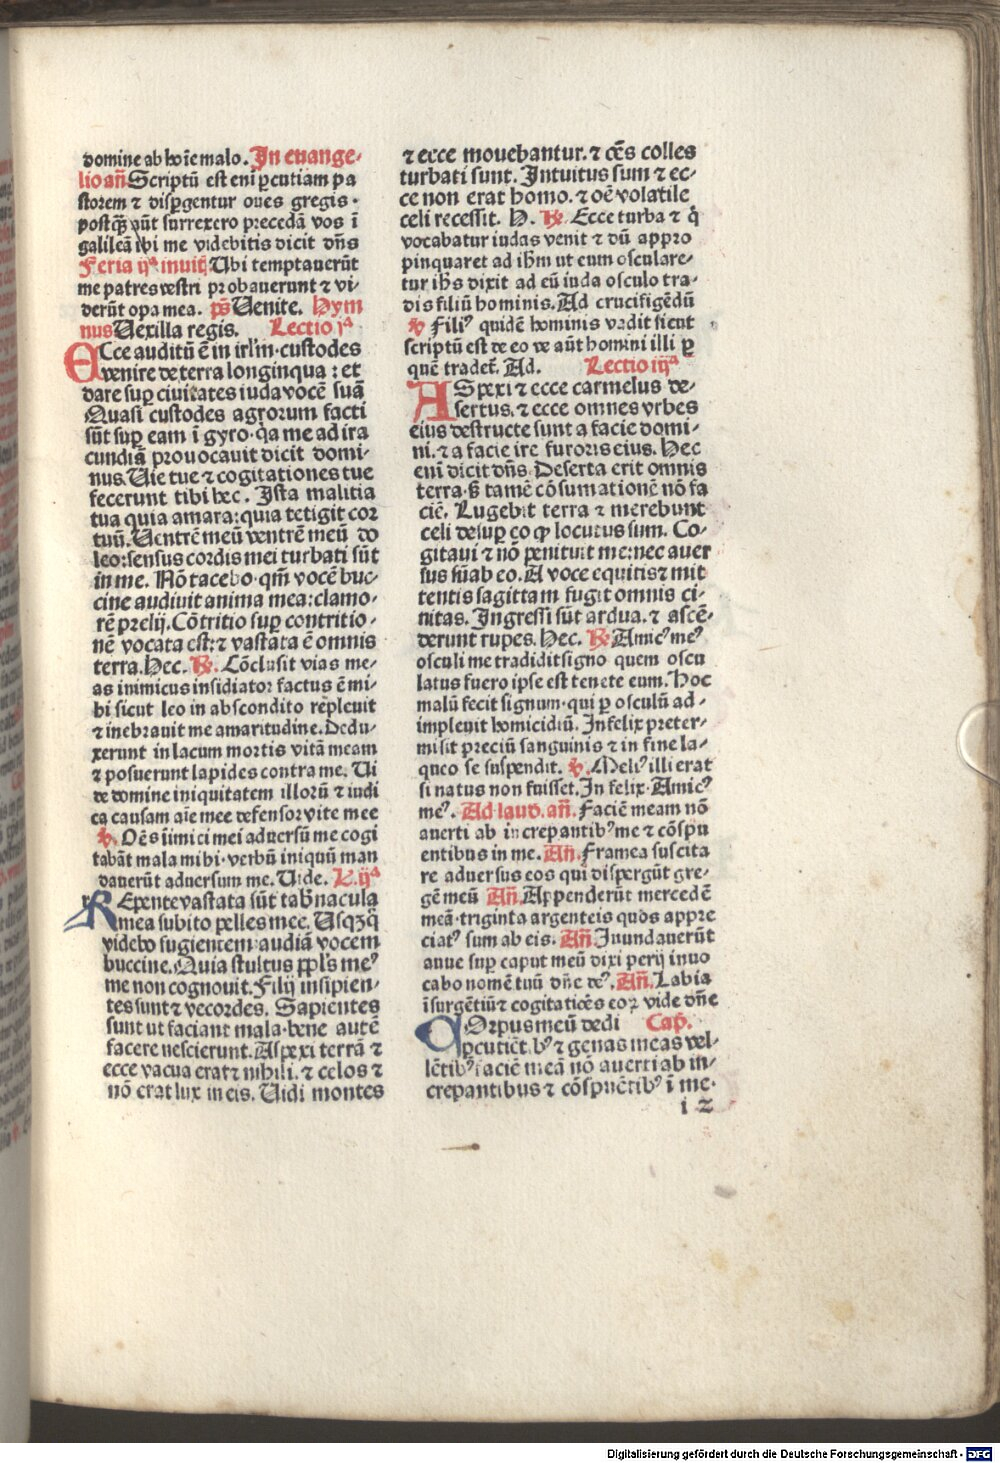 domine ab hoīe malo. In euange-
lio añ Scriptū est eni ꝑcutiam pa
storem ⁊ dispgentur oues gregis.
postq̄ȝ aūt surrexero precedā vos ī
galileā ibi me videbitis dicit dn̄s
Feria ijª inuit̄ Ubi temptauerūt
me patres vestri probauerunt ⁊ vi-
derūt opa mea. ps̄ Uenite. Hym
nus Uexilla regis. Lectio jª
ECce auditū ē in irl̄'m custodes
venire de terra longinqua : et
dare suꝑ ciuitates iuda vocē suā
Quasi custodes agrorum facti
sūt suꝑ eam ī gyro. q̇a me ad ira
cundiā prouocauit dicit domi-
nus. Uie tue ⁊ cogitationes tue
fecerunt tibi hec. Ista malitia
tua quia amara: quia tetigit cor
tuū. Uentrē meū ventrē meū do
leo: sensus cordis mei turbati sūt
in me. Nō tacebo. qm̄ vocē buc-
cine audiuit anima mea: clamo-
rē prelij. Cōtritio suꝑ contritio-
nē vocata est: ⁊ vastata ē omnis
terra. Hec. ℟. Cōclusit vias me-
as inimicus insidiator factus ē mi-
hi sicut leo in abscondito repleuit
⁊ inebrauit me amaritudine. Dedu-
xerunt in lacum mortis vitā meam
⁊ posuerunt lapides contra me. Ui
de domine iniquitatem illorū ⁊ iudi
ca causam aīe mee defensor vite mee
℣. Oēs īimici mei aduersū me cogi
tabāt mala mihi. verbū iniquū man
dauerūt aduersum me. Uide. L. ijª
REpente vastata sūt tab'nacula
mea subito pelles mee. Usq̄ȝq̄
videbo fugientem: audiā vocem
buccine. Quia stultus ppl's me⁹
me non cognouit. Filij insipien-
tes sunt ⁊ vecordes. Sapientes
sunt ut faciant mala. bene autē
facere nescierunt. Aspexi terrā ⁊
ecce vacua erat ⁊ nihili. ⁊ celos ⁊
nō erat lux in eis. Uidi montes
⁊ ecce mouebantur. ⁊ oēs colles
turbati sunt. Intuitus sum ⁊ ec-
ce non erat homo. ⁊ oē volatile
celi recessit. H. ℟. Ecce turba ⁊ q̇
vocabatur iudas venit ⁊ dū appro
pinquaret ad ihm̄ ut eum osculare-
tur ihs̄ dixit ad eū iuda osculo tra-
dis filiū hominis. Ad crucifigēdū
℣ Fili⁹ quidē hominis vadit sicut
scriptū est de eo ve aūt homini illi ꝑ
quē tradet̄. Ad. Lectio iijª
ASpexi ⁊ ecce carmelus de-
sertus. ⁊ ecce omnes vrbes
eius destructe sunt a facie domi-
ni. ⁊ a facie ire furoris eius. Hec
enī dicit dn̄s. Deserta erit omnis
terra. sȝ tamē cōsumationē nō fa
ciē. Lugebit terra ⁊ merebunt
celi desuꝑ eo ꝙ locutus sum. Co-
gitaui ⁊ nō penituit me: nec auer
sus sū ab eo. A voce equitis ⁊ mit
tentis sagittam fugit omnis ci-
uitas. Ingressi sūt ardua. ⁊ ascē-
derunt rupes. Hec. ℟. Amic⁹ me⁹
osculi me tradidit signo quem oscu
latus fuero ipse est tenete eum. Hoc
malū fecit signum. qui ꝑ osculū ad-
impleuit homicidiū. Infelix preter-
misit preciū sanguinis ⁊ in fine la-
queo se suspendit. ℣. Meli⁹ illi erat
si natus non fuisset. In felix. Amic⁹
me⁹. Ad laud. añ. Faciē meam nō
auerti ab increpantib⁹ me ⁊ cōspu
entibus in me. Añ. Framea suscita
re aduersus eos qui dispergūt gre-
gē meū Añ. Appenderūt mercedē
meā. triginta argenteis quos appre
ciat⁹ sum ab eis. Añ. Inundauerūt
aque suꝑ caput meū dixi perij inuo
cabo nomē tuū dn̄e de⁹. Añ. Labia
īsurgētiū ⁊ cogitatiōes eoꝝ vide dn̄e
COrpus meū dedi Cap̄.
ꝑcutiēt b⁹ ⁊ genas meas vel-
lētib⁹ faciē meā nō auerti ab in-
crepantibus ⁊ cōspuētib⁹ ī me.
i 2
Digitalisierung gefördert durch die Deutsche Forschungsgemeinschaft - DFG